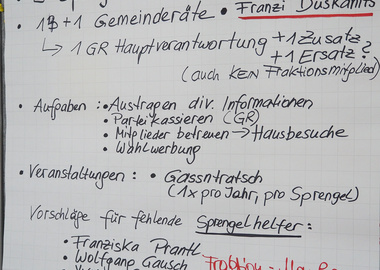 • Franzi Duskanits
• 13 + 1 Gemeinderäte
↳ 1 GR Hauptverantwortung + 1 Zusatz
+ 1 Ersatz?
(auch KEIN Fraktionsmitglied)
• Aufgaben: • Austragen div. Informationen
• Parteikassieren (GR)
• Mitglieder betreuen → Hausbesuche
• Wahlwerbung
• Veranstaltungen: • Gassntratsch
(1x pro Jahr, pro Sprengel)
Vorschläge für fehlende Sprengelhelfer:
• Franziska Prantl
• Wolfgang Gausch